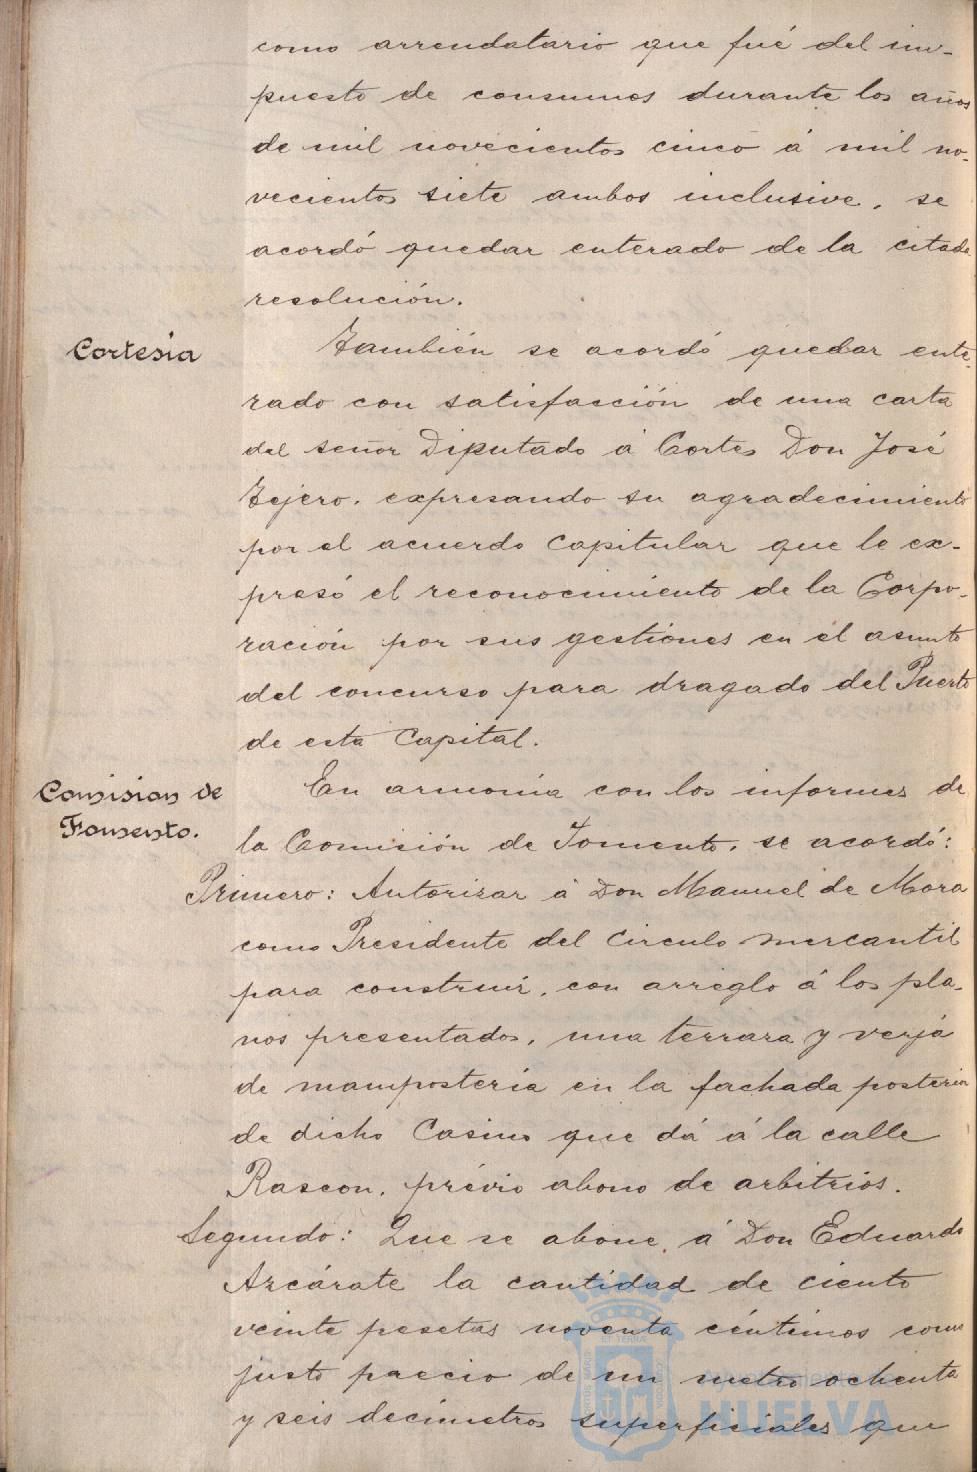 como arrendatario que fué del im-
puesto de consumos durante los años
de mil novecientos cinco á mil no-
vecientos siete ambos inclusive, se
acordó quedar enterado de la citada
resolución.
Cortesia
También se acordó quedar ente-
rado con satisfacción de una carta
del señor Diputado á Cortes Don José
Tejero, expresando su agradecimiento
por el acuerdo capitular que le ex-
presó el reconocimiento de la Corpo-
ración por sus gestiones en el asunto
del concurso para dragado del Puerto
de esta Capital.
Comision de
Fomento.
En armonía con los informes de
la Comisión de Fomento, se acordó:
Primero: Autorizar á Don Manuel de Mora
como Presidente del Circulo mercantil
para construir, con arreglo á los pla-
nos presentados, una terrara y verja
de mampostería en la fachada posterior
de dicho Casino que dá á la calle
Rascon, prévio abono de arbitrios.
Segundo: Que se abone á Don Eduardo
Azcárate la cantidad de ciento
veinte pesetas noventa céntimos como
justo precio de un metro ochenta
y seis decímetros superficiales que
Ayuntamiento de
HUELVA